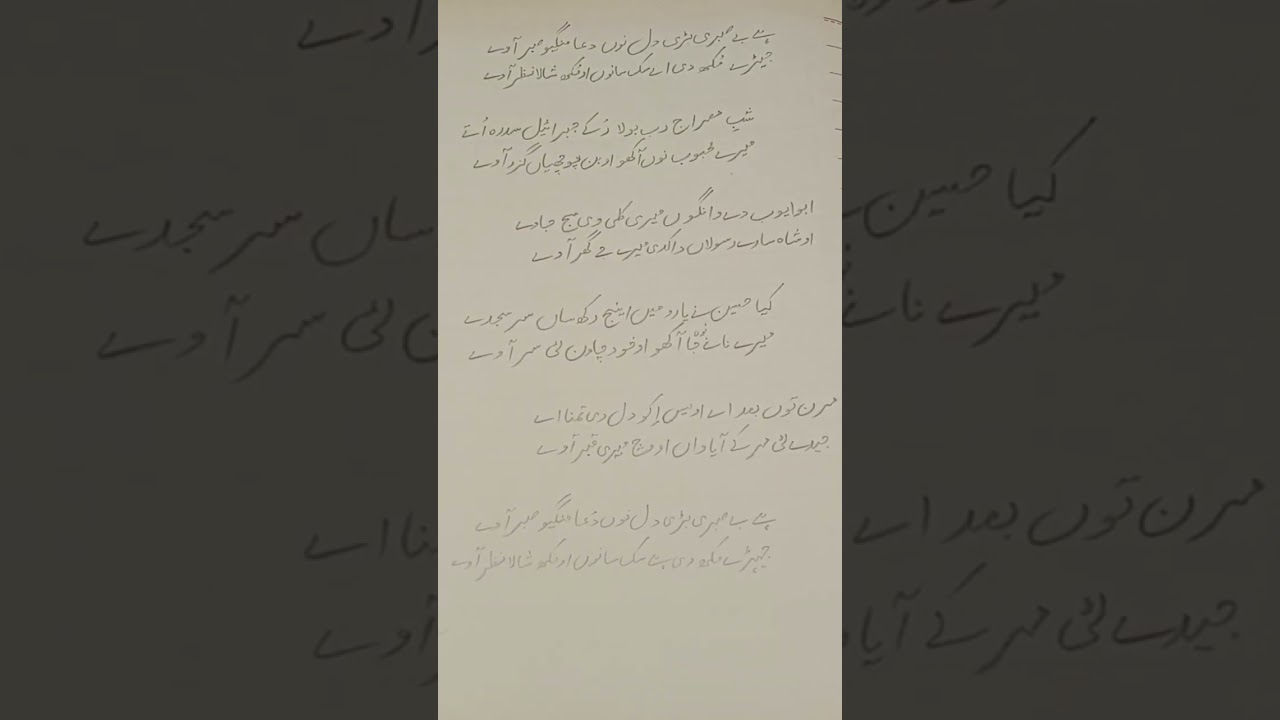 ہے بے صبری بڑی دل نوں دعا منگیو صبر آوے
جیڑے مُکھ دی اے سک سانوں او مُکھ شالا نظر آوے
شبِ معراج رب بولا رُکے جبرائیل سدرہ اُتے
میرے محبوب نوں آکھو او بن پوچھیاں گزر آوے
ابو ایوب دے وانگوں میری کلی وی سج جاوے
او شاہ سارے رسولاں دا کدی میرے جے گھر آوے
کیا حسین نے یارو میں اینج رکھ ساں سر سجدے
میرے نانے نوں جا آکھو او خود چاون لئی سر آوے
مرن توں بعد اے اویس اِکو دل دی تمنا اے
جیدے لئی مر کے آیا واں او وچ میری قبر آوے
ہے بے صبری بڑی دل نوں دُعا منگیو صبر آوے
جیہڑے مکھ دی ہے سک سانوں او مکھ شالا نظر آوے